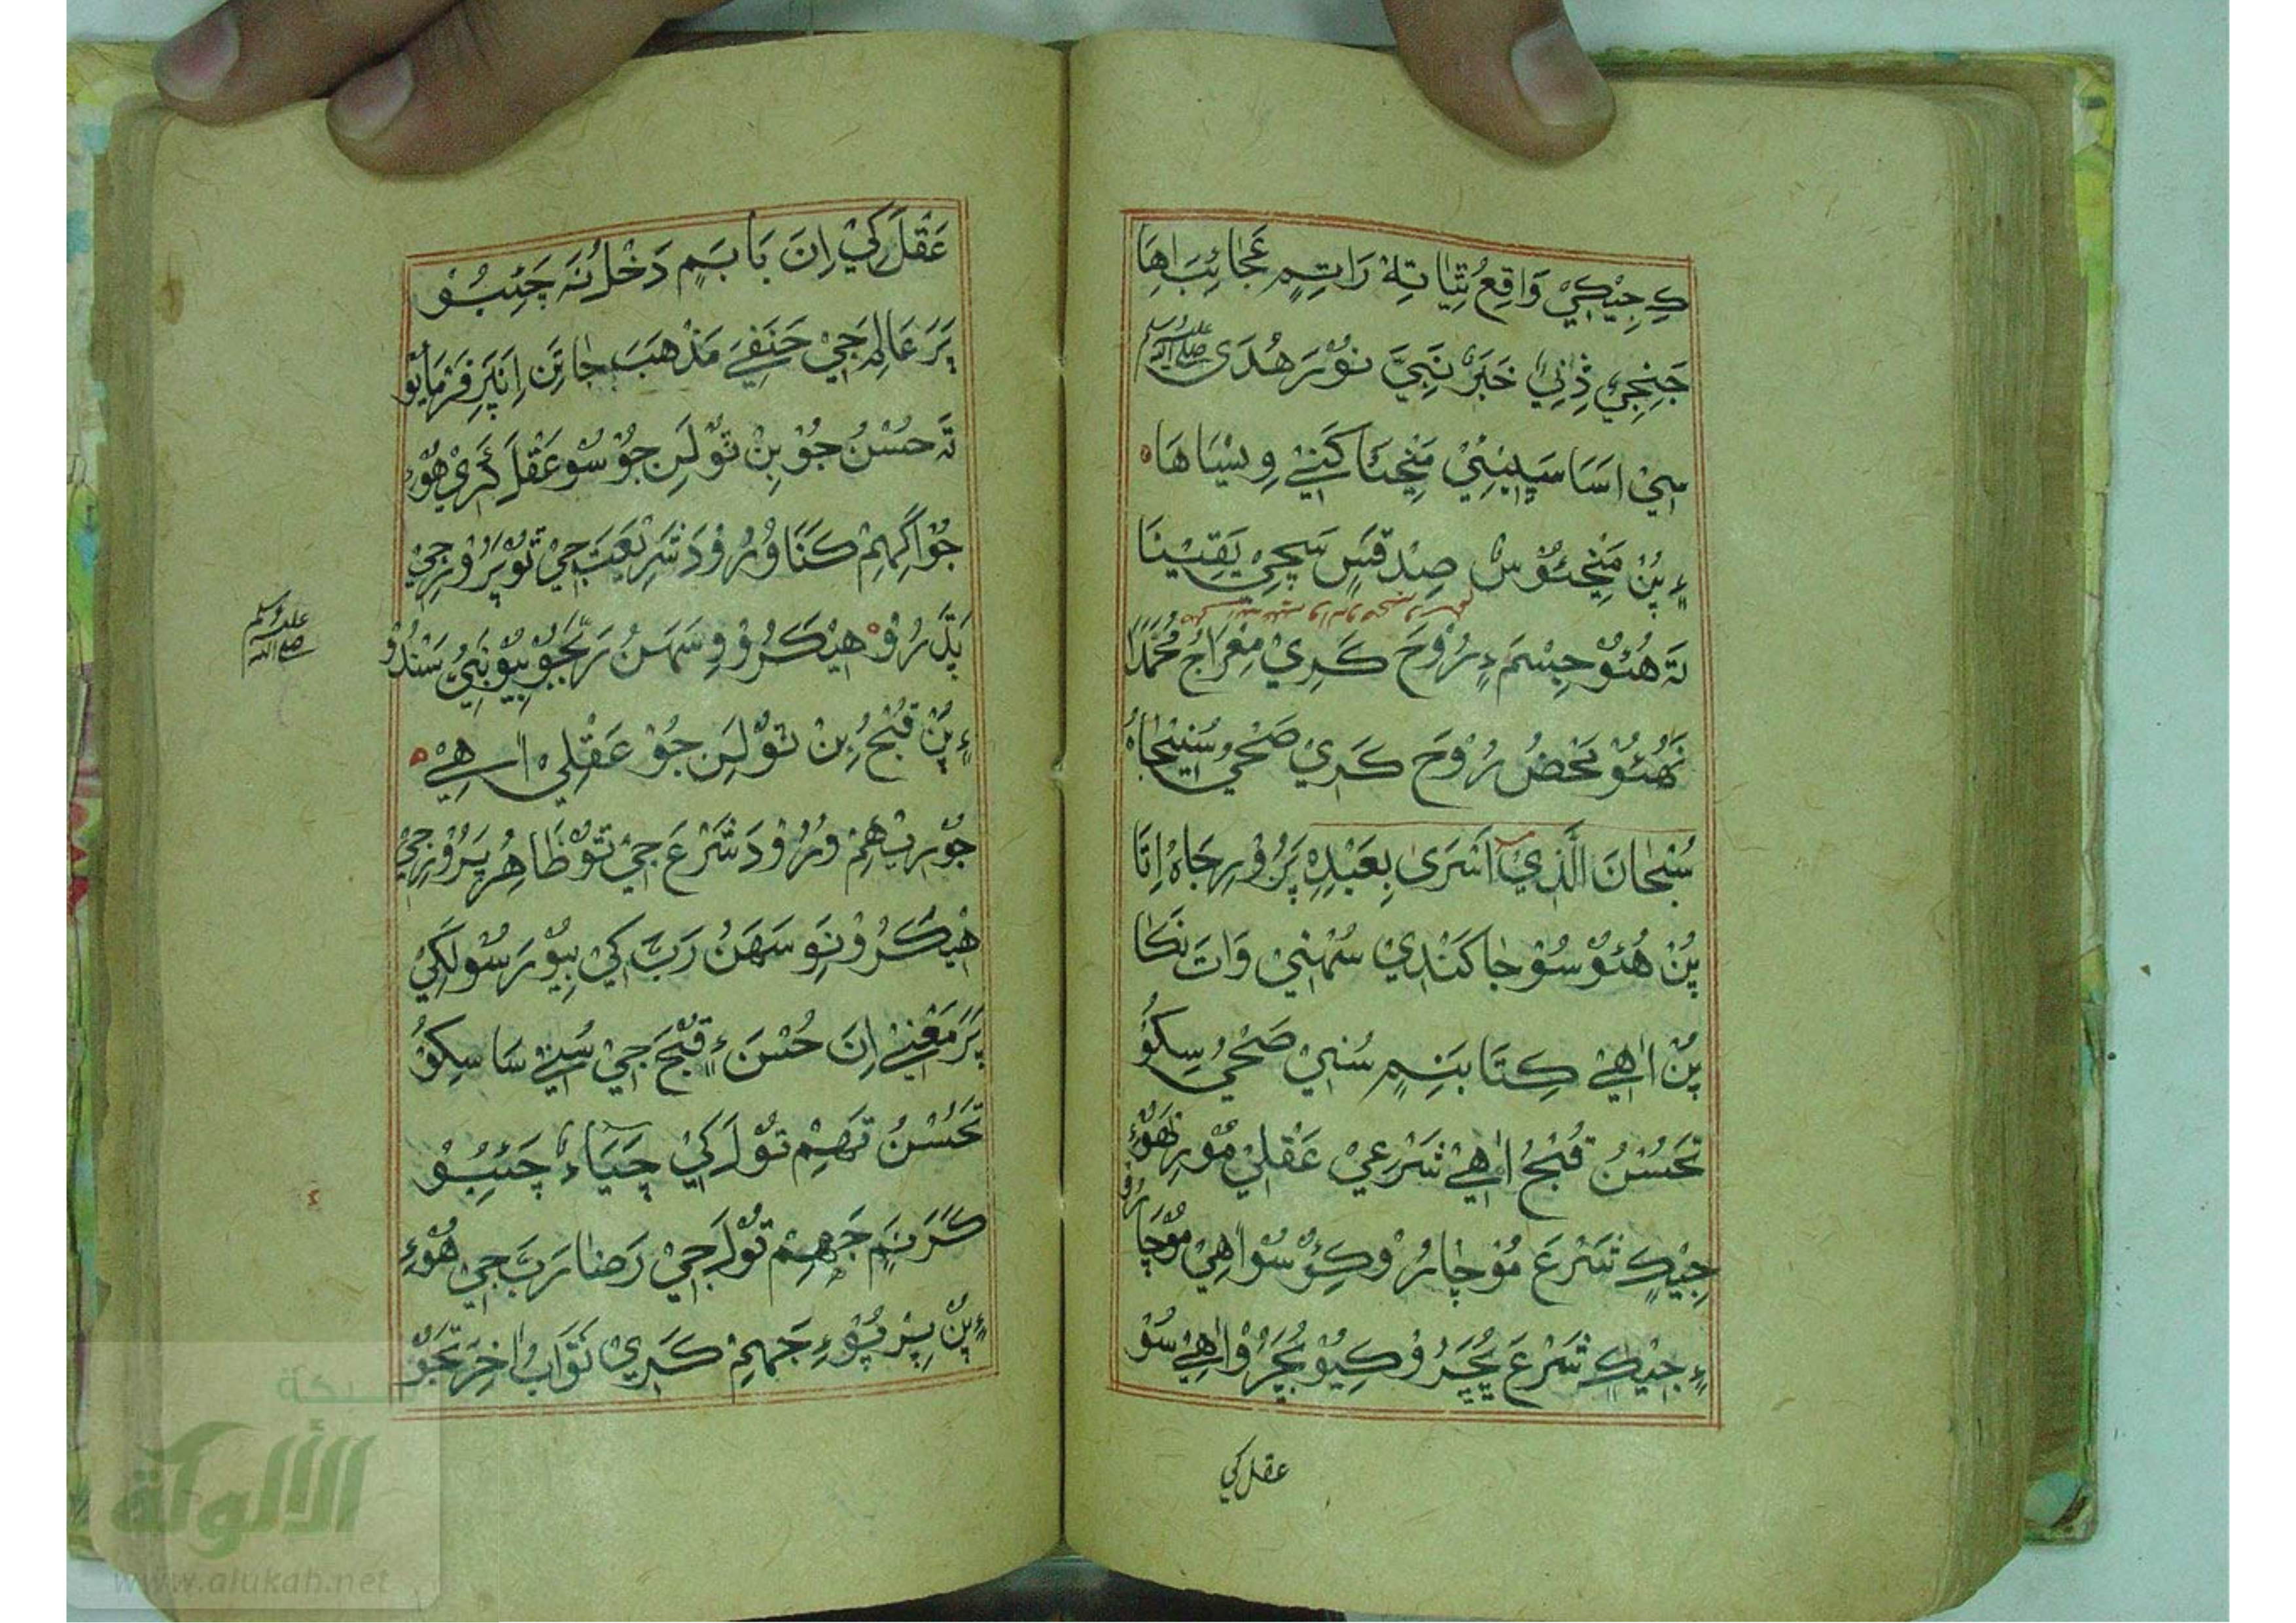 کِ جِيْکِيْ وَاقِعُ ثِيَا تِهْ رَاتِمٍ عَجَائِبَ اهَا
جَنِجِيْ ذِنِيْ خَبَرَ نَبِيَّ نُوْرَ هُدَی صلی الله علیه وسلم
سٖيْ اسَا سَڀِيْئِيْ مَڃِئَا کَنِيْ وِيْسَاهَا
۽ٍ پُنْ مَڃِئُوْسٖ صِدْقَسٖ سَچِيْ يَقِيْنَا
تَہ هُئُوْ جِسْمَ ۽ٍ رُوْحَ کَرِيْ مِعْرَاجُ مُحَمَّدَا
نَہ هُئُوْ مَحْضُ رُوْحَ کَرِيْ صَحِيْ سُڃِيْجَاہُ
سُبْحَانَ الَّذِيْ اَسْرَی بِعَبْدِہٖ پَرُوْرِجَاہُ اِتَا
پُنْ هُئُوْ سُوْجَاکَنْدِيْ سُمْهَنِيْ وَاتَ نَکَا
پُنْ اٰهِيْ کِتَابَنِمٖ سُنِيْ صَحِيْ سِکُوْ
تَحُسْنُ قُبْحُ اٰهِيْ شَرْعِيْ عَقْلِيْ مُوْرِنَهُوْءِ
جِيْکٖ شَرْعَ مُوْچَارُوْ کِئُوْ سُوْ اٰهِيْ مُوْچَارُوْ
۽ٍ جِيْکٖ شَرْعَ بُچَڙُوْ کِيُوْ بُچَڙُوْ اٰهِيْ سُوْ
عقل کي
عَقْلَ کِيْ اِنَ بَابَمٖ دَخْلُ نَہ چَئِبُوْ
پَرَ عَالِمَ جِيْ حَنَفِيْ مَذْهَبَ جَا تِنِ اِنَپَرِ فَرْمَايُوْ
تَہ حُسْنُ جُوْ بِنْ تُوْلَنِ جُوْ سُوْ عَقْلَ کَرِيْ هُوْءِ
جُوْ اَگَہِمْ کَنَا وُرُوْدَ شَرِيْعَتَ جِيْ تُوْ پَرُوْرِجِيْ
پَڌَرُوْ هِيْکَڙُوْ وِسَهَنُ رَبَّجُوْ بِيُوْ نَبِيْ سَنْدُوْ
صلی الله علیه وسلم
۽ٍ پُنْ قُبْحُ بِنْ تُوْلَنِ جُوْ عَقْلِيْ اٰهِيْ
جُوْ رِيْتَهِمْ وُرُوْدَ شَرْعَ جِيْ تُوْ ظَاهِرُ پَرُوْرِجِيْ
هِيْکَڙُوْ نَوِ سَهَنُ رَبَّ کِيْ بِيُوْ رَسُوْلَ کِيْ
پَرَ مَعْنِيْ اِنَ حُسْنَ ۽ٍ قُبْحَ جِيْ سُنِيْ سَا سِکُوْ
تَحُسْنُ تَہِمْ تُوْلَ کِيْ چَيَاءُ چَئِبُوْ
کَرَنَمٖ جَہِمْ تُوْلَ جِيْ رَضَا رَبَّ جِيْ هُوْءِ
۽ٍ پُنْ پِڻْ پُوْءِ جَہِمْ کَرِيْ ثَوَابُ اٰخِرَتَجُوْ
شبكة
الألوكة
www.alukah.net